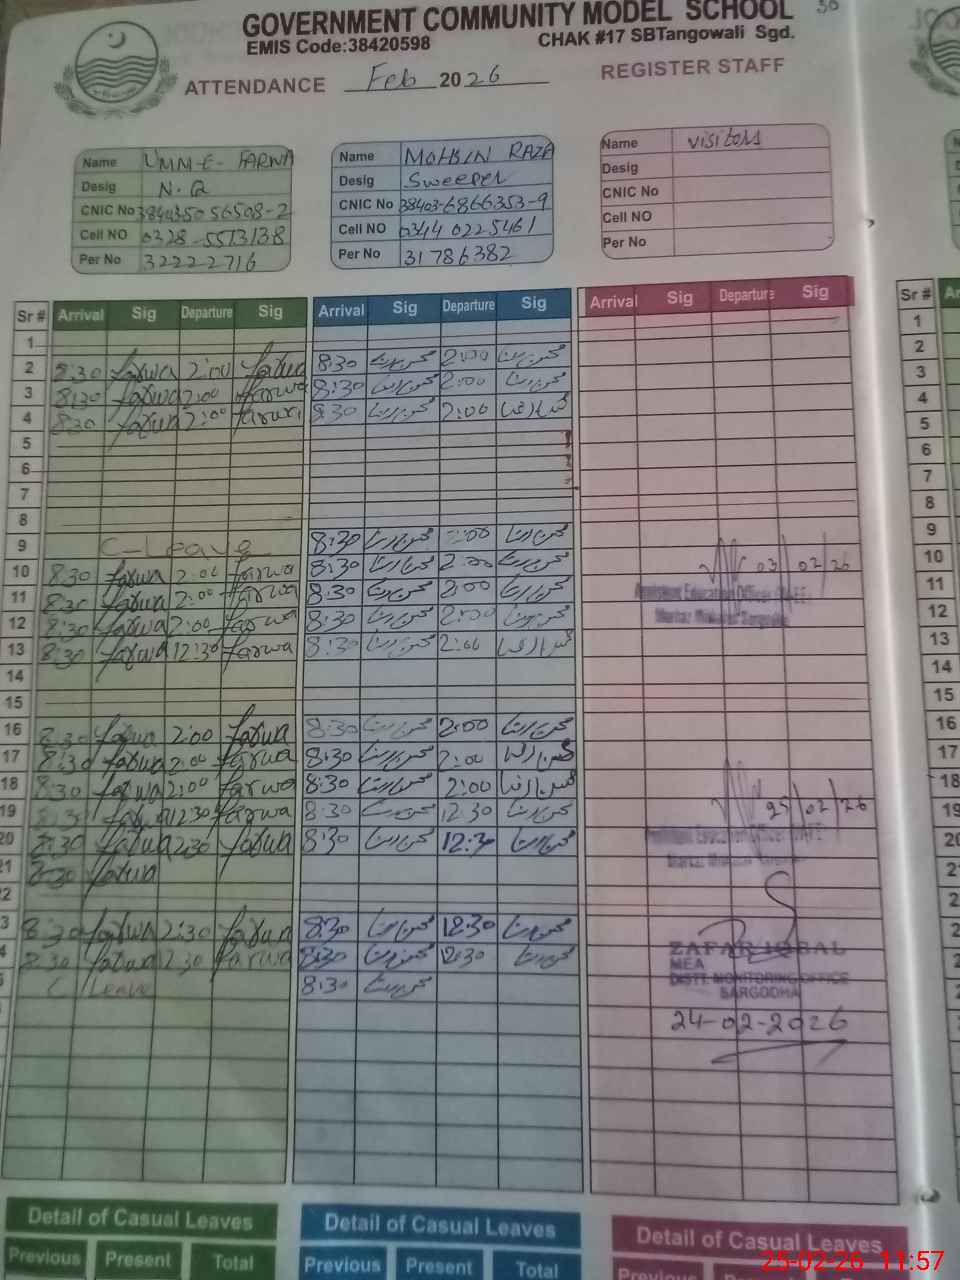 GOVERNMENT COMMUNITY MODEL SCHOOL
EMIS Code:38420598 CHAK #17 SBTangowali Sgd.
ATTENDANCE Feb 2026 REGISTER STAFF
Name UMM-E-FARWA
Desig N.Q
CNIC No
Cell NO 0328-5513138
Per No 32222716
Name MOHSIN RAZA
Desig Sweeper
CNIC No 38403-6866353-9
Cell NO 0344 0225461
Per No 31786382
Name visitors
Desig
CNIC No
Cell NO
Per No
Sr # Arrival Sig Departure Sig Arrival Sig Departure Sig Arrival Sig Departure Sig Sr #
1 1
2 8:30 Farwa 2:00 Farwa 8:30 محسن رضا 2:00 محسن رضا 2
3 8:30 Farwa 2:00 Farwa 8:30 محسن رضا 2:00 محسن رضا 3
4 8:30 Farwa 2:00 Farwa 8:30 محسن رضا 2:00 محسن رضا 4
5 5
6 6
7 7
8 8
9 C-Leave 8:30 محسن رضا 2:00 محسن رضا 9
10 8:30 Farwa 2:00 Farwa 8:30 محسن رضا 2:00 محسن رضا 03/02/26 10
11 8:30 Farwa 2:00 Farwa 8:30 محسن رضا 2:00 محسن رضا Assistant Education Officer 11
12 8:30 Farwa 2:00 Farwa 8:30 محسن رضا 2:00 محسن رضا 12
13 8:30 Farwa 12:30 Farwa 8:30 محسن رضا 2:00 محسن رضا 13
14 14
15 15
16 8:30 Farwa 2:00 Farwa 8:30 محسن رضا 2:00 محسن رضا 16
17 8:30 Farwa 2:00 Farwa 8:30 محسن رضا 2:00 محسن رضا 17
18 8:30 Farwa 2:00 Farwa 8:30 محسن رضا 2:00 محسن رضا 18
19 8:30 Farwa 12:30 Farwa 8:30 محسن رضا 12:30 محسن رضا 25/02/26 19
20 8:30 Farwa 12:30 Farwa 8:30 محسن رضا 12:30 محسن رضا Education Officer 20
21 8:30 Farwa
22
3 8:30 Farwa 12:30 Farwa 8:30 محسن رضا 12:30 محسن رضا
4 8:30 Farwa 12:30 Farwa 8:30 محسن رضا 12:30 محسن رضا ZAFAR IQBAL
C Leave 8:30 محسن رضا MEA
DISTT. MONITORING OFFICE
SARGODHA
24-02-2026
Detail of Casual Leaves Detail of Casual Leaves Detail of Casual Leaves
Previous Present Total Previous Present Total Previous Present
25-02-26 11:57